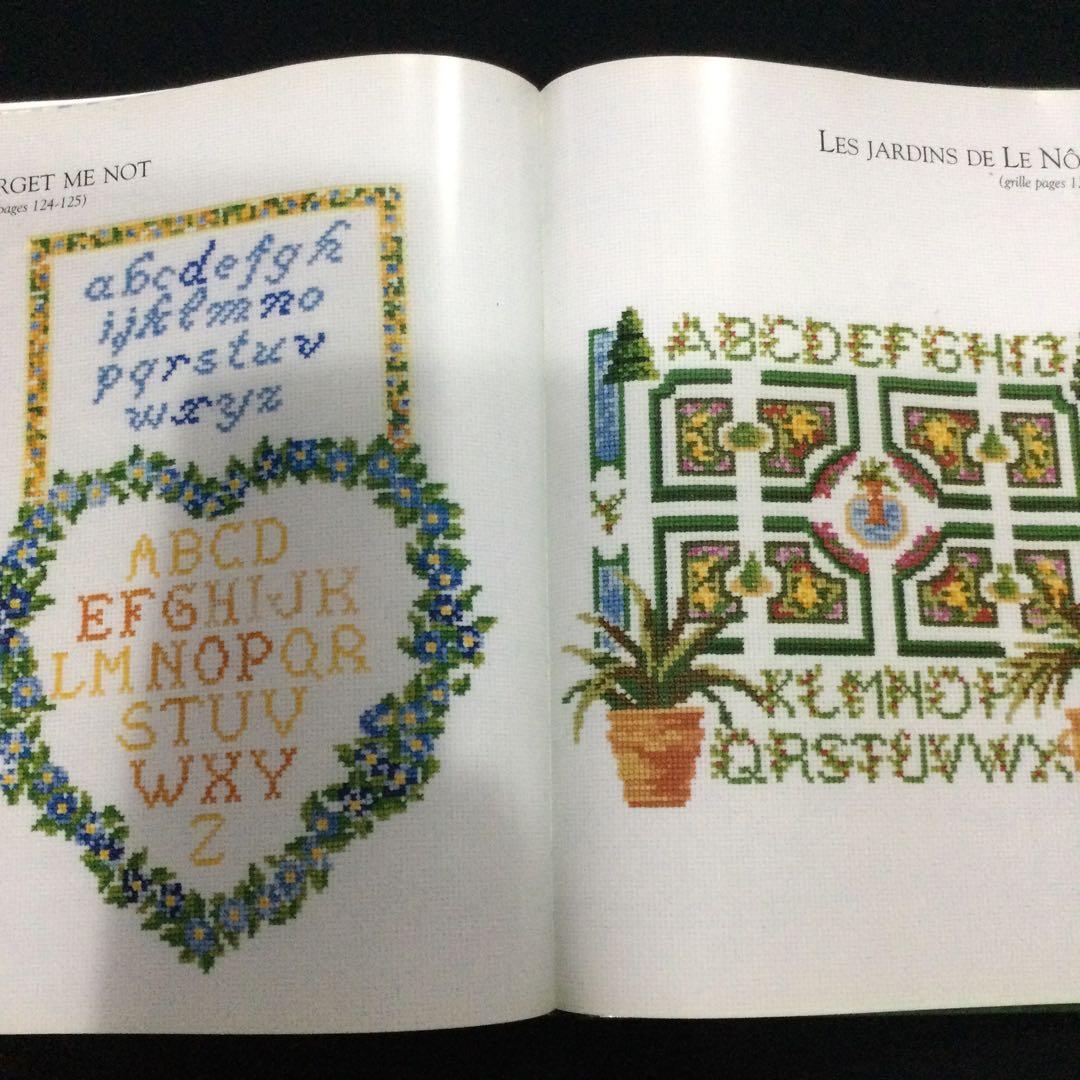 RGET ME NOT
pages 124-125)
abcdefgh
ijklmno
pqrstuv
wxyz
ABCD
EFGHIJK
LMNOPQR
STUV
WXY
Z
LES JARDINS DE LE NÔ
(grille pages 1
ABCDEFGHIJ
KLMNOP
QRSTUVWX